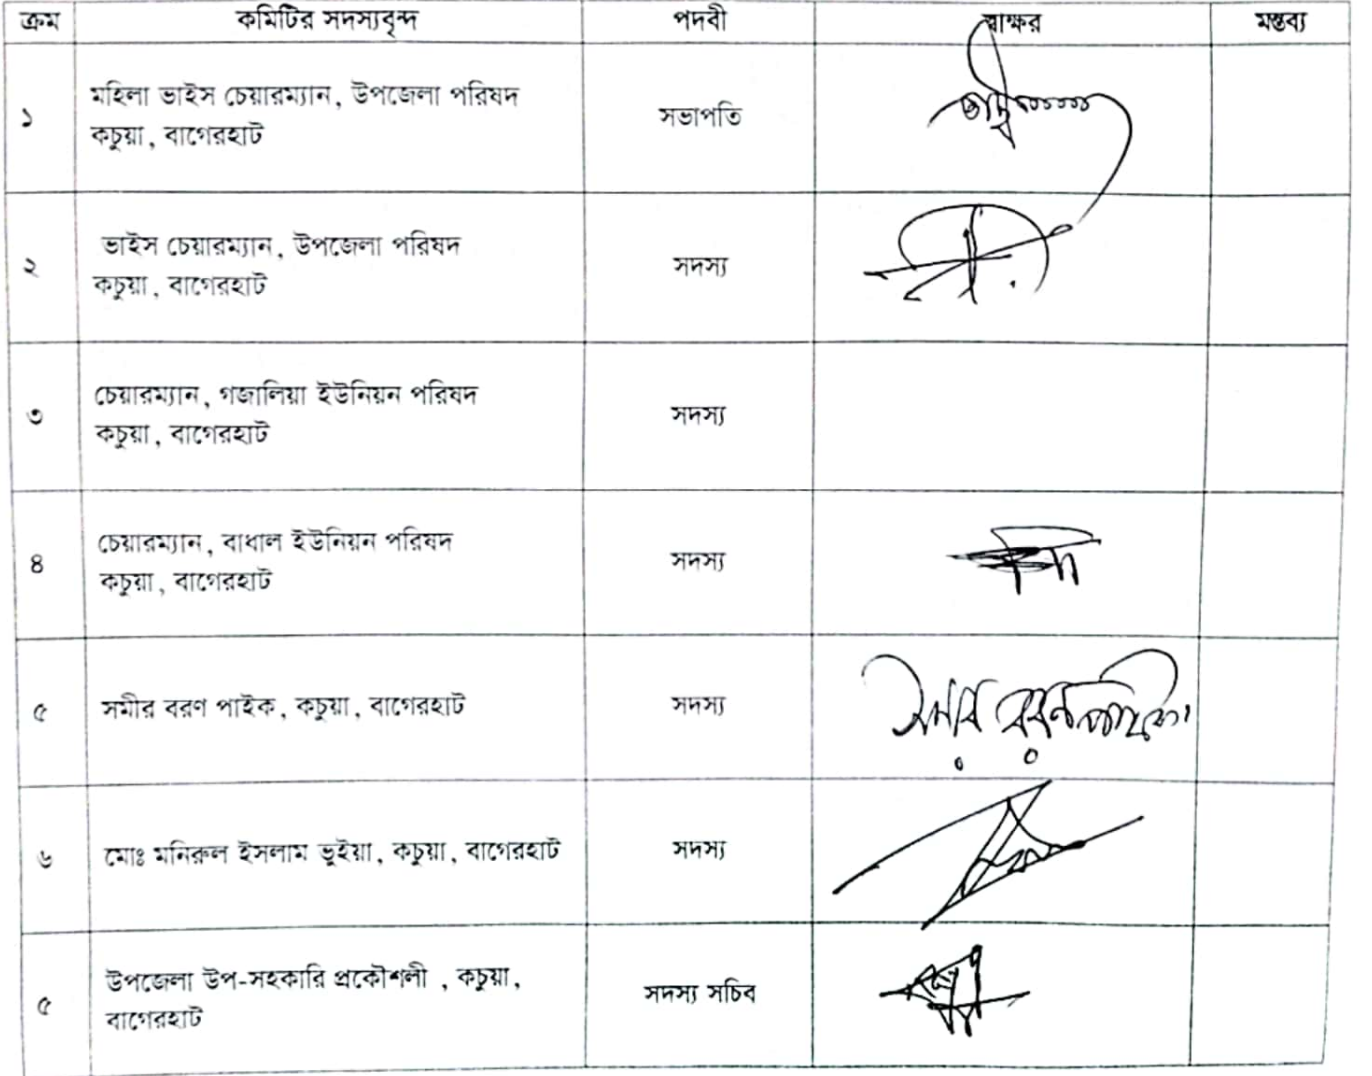 ক্রম কমিটির সদস্যবৃন্দ পদবী স্বাক্ষর মন্তব্য
১ মহিলা ভাইস চেয়ারম্যান, উপজেলা পরিষদ সভাপতি
কচুয়া, বাগেরহাট
২ ভাইস চেয়ারম্যান, উপজেলা পরিষদ সদস্য
কচুয়া, বাগেরহাট
৩ চেয়ারম্যান, গজালিয়া ইউনিয়ন পরিষদ সদস্য
কচুয়া, বাগেরহাট
৪ চেয়ারম্যান, বাধাল ইউনিয়ন পরিষদ সদস্য
কচুয়া, বাগেরহাট
৫ সমীর বরণ পাইক, কচুয়া, বাগেরহাট সদস্য সমীর বরণ পাইক
৬ মোঃ মনিরুল ইসলাম ভুইয়া, কচুয়া, বাগেরহাট সদস্য
৫ উপজেলা উপ-সহকারি প্রকৌশলী , কচুয়া, সদস্য সচিব
বাগেরহাট